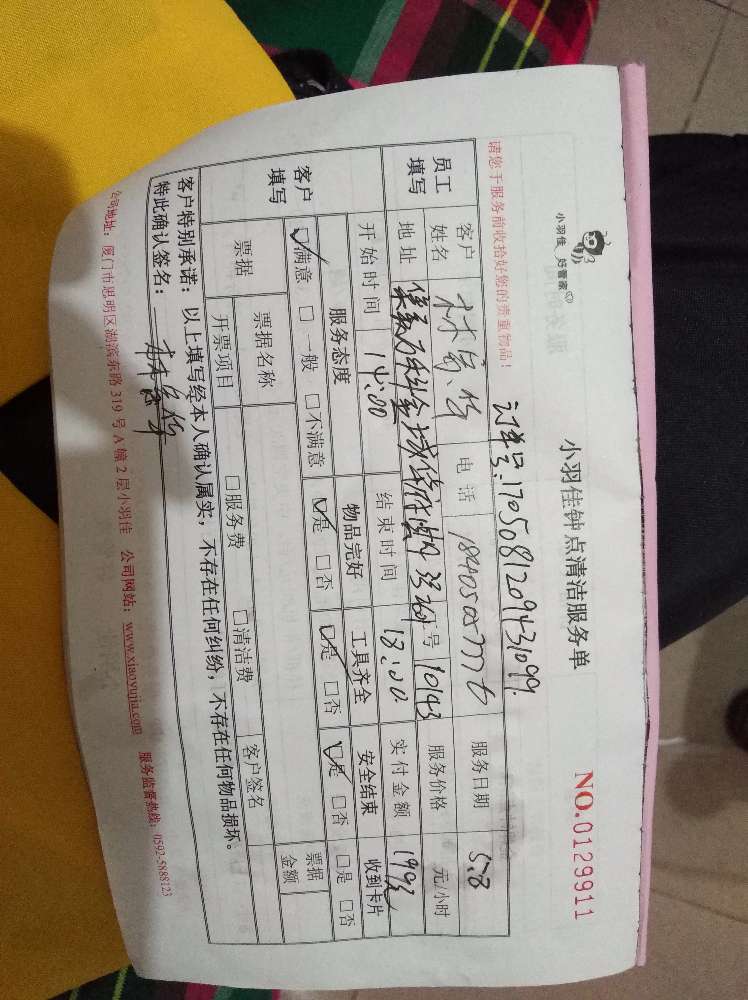 小羽佳 好管家
小羽佳钟点清洁服务单
NO.0129911
请您于服务前收拾好您的贵重物品!
订单号:1705081209431099
员工填写
客户姓名
电话
服务日期 5.8
地址
工号 10143
服务价格 元/小时
开始时间 14:00
结束时间 18:00
实付金额 199元
客户填写
服务态度 物品完好 工具齐全 安全结束 收到卡片
☑满意 □一般 □不满意 ☑是 □否 ☑是 □否 ☑是 □否 □是 □否
票据
票据名称
票据金额
开票项目 □服务费 □清洁费 客户签名
客户特别承诺:以上填写经本人确认属实,不存在任何纠纷,不存在任何物品损坏。
特此确认签名:
公司地址:厦门市思明区湖滨东路319号A幢2层小羽佳 公司网站:www.xiaoyujia.com 服务监督热线:0592-5888123